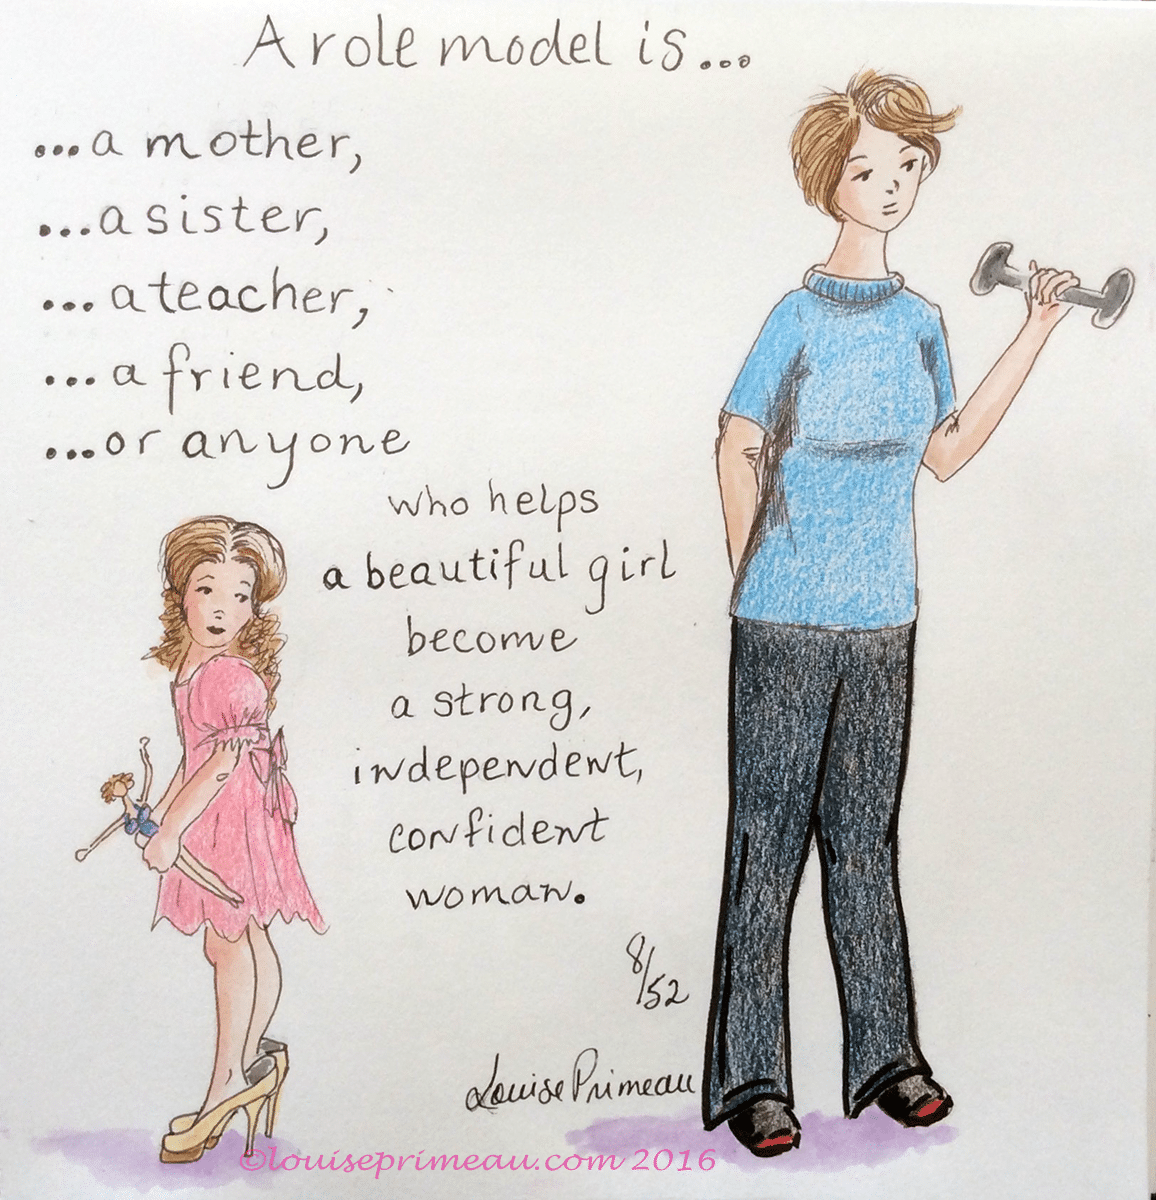 A role model is...
...a mother,
...a sister,
...a teacher,
...a friend,
...or anyone
who helps
a beautiful girl
become
a strong,
independent,
confident
woman.
8/52
Louise Primeau
©louiseprimeau.com 2016